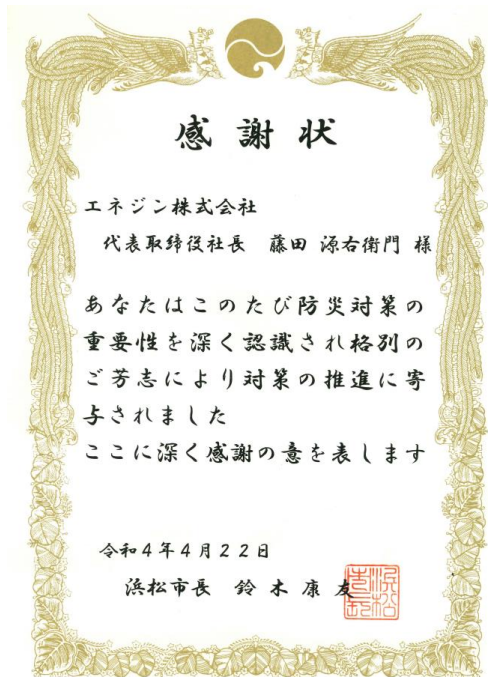 感謝状
エネジン株式会社
代表取締役社長 藤田 源右衛門 様
あなたはこのたび防災対策の
重要性を深く認識され格別の
ご芳志により対策の推進に寄
与されました
ここに深く感謝の意を表します
令和4年4月22日
浜松市長 鈴木康友
浜松市長印